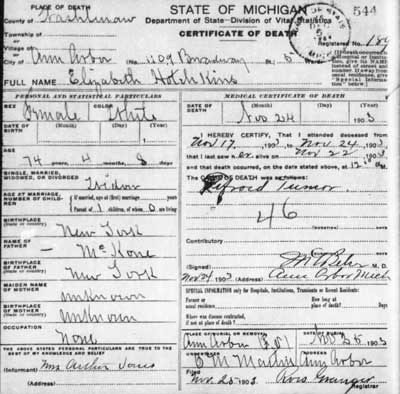 PLACE OF DEATH
STATE OF MICHIGAN
544
County of Washtenaw
Department of State—Division of Vital Statistics
Township of
CERTIFICATE OF DEATH
Village of
Registered No.
City of Ann Arbor (No. 1209 Broadway St., 5 Ward)
FULL NAME Elizabeth Hotchkins
PERSONAL AND STATISTICAL PARTICULARS
SEX Female
COLOR White
DATE OF BIRTH (Month) (Day) (Year)
AGE 74 years, 4 months, 8 days
SINGLE, MARRIED, WIDOWED, OR DIVORCED Widow
AGE AT MARRIAGE, NUMBER OF CHILDREN
If married, age at (first) marriage years
Parent of children, of whom 0 are living
BIRTHPLACE (State or country) New York
NAME OF FATHER — McKone
BIRTHPLACE OF FATHER (State or country) New York
MAIDEN NAME OF MOTHER unknown
BIRTHPLACE OF MOTHER (State or country) unknown
OCCUPATION None
THE ABOVE STATED PERSONAL PARTICULARS ARE TRUE TO THE BEST OF MY KNOWLEDGE AND BELIEF
(Informant) Mrs Arthur Jones
MEDICAL CERTIFICATE OF DEATH
DATE OF DEATH (Month) (Day) (Year)
Nov 24 1903
I HEREBY CERTIFY, That I attended deceased from
Nov 17, 1903, to Nov 24 1903
that I last saw her alive on Nov 22 1903
and that death occurred, on the date stated above, at 12
The CAUSE OF DEATH was as follows:
Fibroid Tumor
46
Contributory
(Signed) M.D.
Nov 24 1903 (Address) Ann Arbor Mich
SPECIAL INFORMATION only for Hospitals, Institutions, Transients or Recent Residents:
Former or usual residence
How long at place of death? Days
Where was disease contracted, if not at place of death?
PLACE OF BURIAL OR REMOVAL
DATE OF BURIAL
Ann Arbor Nov 25 1903
UNDERTAKER
O M Martin Ann Arbor
Filed
Nov. 25 1903 Ross Granger
Registrar